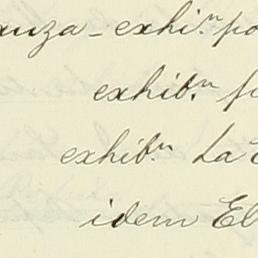 anza - exhi.n po
exhib.n p
exhib.n La E
idem El